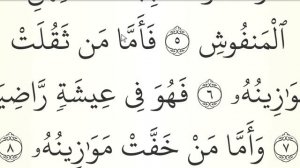 ٱلْمَنفُوشِ ٥ فَأَمَّا مَن ثَقُلَتْ
مَوَٰزِينُهُۥ ٦ فَهُوَ فِى عِيشَةٍ رَّاضِيَ
٧ وَأَمَّا مَنْ خَفَّتْ مَوَٰزِينُهُۥ ٨